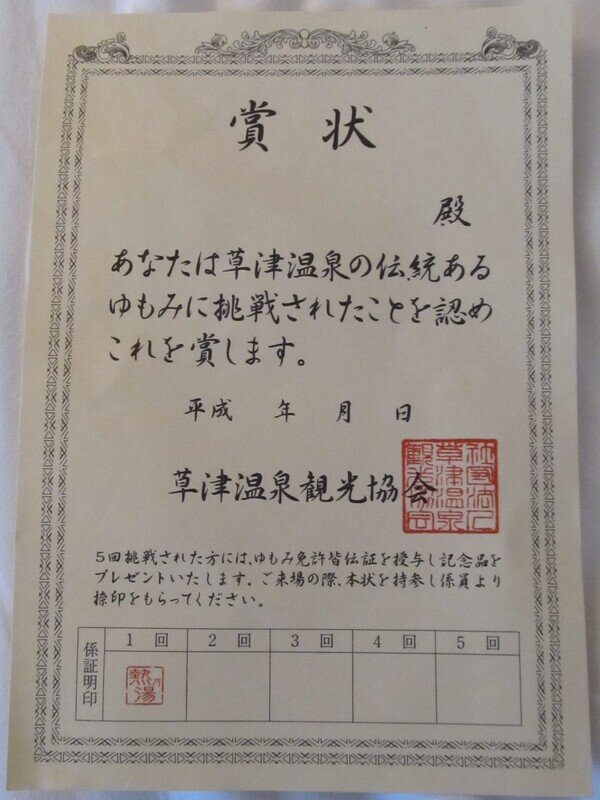 賞状
殿
あなたは草津温泉の伝統ある
ゆもみに挑戦されたことを認め
これを賞します。
平成 年 月 日
草津温泉観光協会
社団法人草津温泉観光協会
5回挑戦された方には、ゆもみ免許皆伝証を授与し記念品を
プレゼントいたします。ご来場の際、本状を持参し係員より
捺印をもらってください。
係証明印
1回 2回 3回 4回 5回
熱乃湯